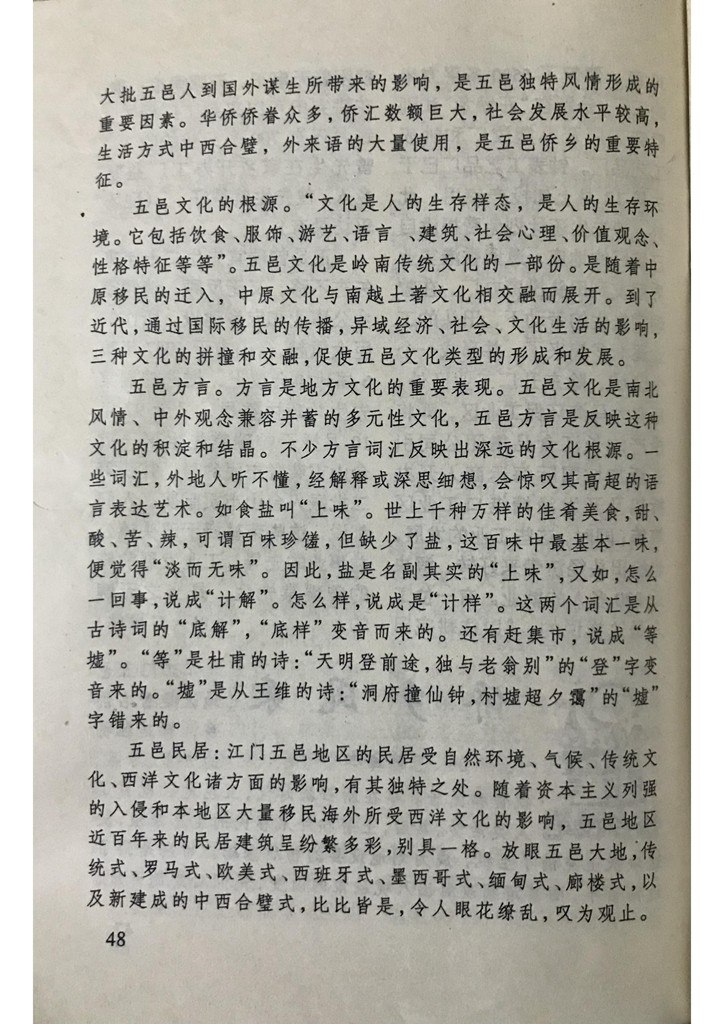 大批五邑人到国外谋生所带来的影响，是五邑独特风情形成的
重要因素。华侨侨眷众多，侨汇数额巨大，社会发展水平较高，
生活方式中西合璧，外来语的大量使用，是五邑侨乡的重要特
征。
五邑文化的根源。“文化是人的生存样态，是人的生存环
境。它包括饮食、服饰、游艺、语言、建筑、社会心理、价值观念、
性格特征等等”。五邑文化是岭南传统文化的一部份。是随着中
原移民的迁入，中原文化与南越土著文化相交融而展开。到了
近代，通过国际移民的传播，异域经济、社会、文化生活的影响，
三种文化的拼撞和交融，促使五邑文化类型的形成和发展。
五邑方言。方言是地方文化的重要表现。五邑文化是南北
风情、中外观念兼容并蓄的多元性文化，五邑方言是反映这种
文化的积淀和结晶。不少方言词汇反映出深远的文化根源。一
些词汇，外地人听不懂，经解释或深思细想，会惊叹其高超的语
言表达艺术。如食盐叫“上味”。世上千种万样的佳肴美食，甜、
酸、苦、辣，可谓百味珍馐，但缺少了盐，这百味中最基本一味，
便觉得“淡而无味”。因此，盐是名副其实的“上味”，又如，怎么
一回事，说成“计解”。怎么样，说成是“计样”。这两个词汇是从
古诗词的“底解”，“底样”变音而来的。还有赶集市，说成“等
墟”。“等”是杜甫的诗：“天明登前途，独与老翁别”的“登”字变
音来的。“墟”是从王维的诗：“洞府撞仙钟，村墟超夕霭”的“墟”
字错来的。
五邑民居：江门五邑地区的民居受自然环境、气候、传统文
化、西洋文化诸方面的影响，有其独特之处。随着资本主义列强
的入侵和本地区大量移民海外所受西洋文化的影响，五邑地区
近百年来的民居建筑呈纷繁多彩，别具一格。放眼五邑大地，传
统式、罗马式、欧美式、西班牙式、墨西哥式、缅甸式、廊楼式，以
及新建成的中西合璧式，比比皆是，令人眼花缭乱，叹为观止。
48